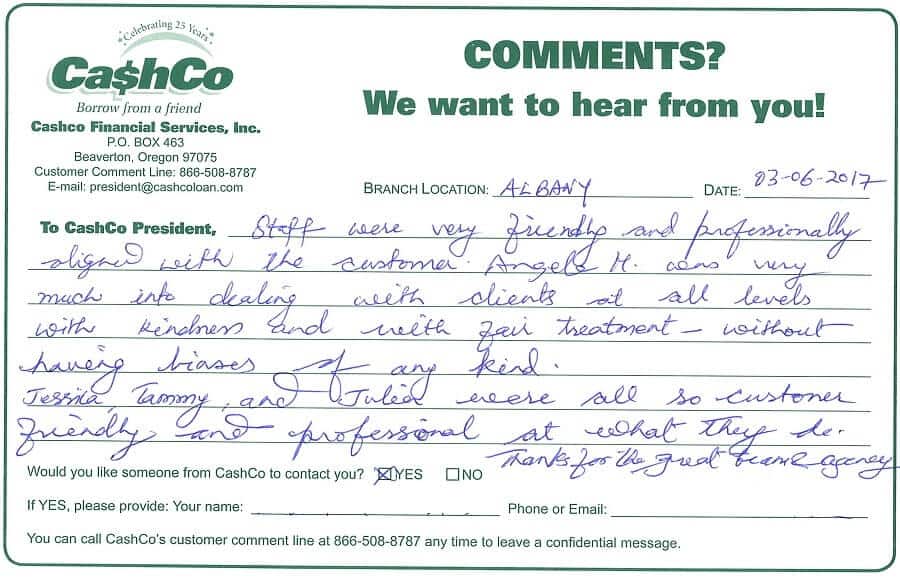 Celebrating 25 Years
Ca$hCo
Borrow from a friend
Cashco Financial Services, Inc.
P.O. BOX 463
Beaverton, Oregon 97075
Customer Comment Line: 866-508-8787
E-mail: president@cashcoloan.com
COMMENTS?
We want to hear from you!
BRANCH LOCATION: ALBANY DATE: 03-06-2017
To CashCo President, Staff were very friendly and professionally
aligned with the customer. Angela M. was very
much into dealing with clients at all levels
with kindness and with fair treatment - without
having biases of any kind.
Jessica, Tammy, and Julia were all so customer
friendly and professional at what they do.
Thanks for the great team & agency
Would you like someone from CashCo to contact you? ☒ YES ☐ NO
If YES, please provide: Your name: Phone or Email:
You can call CashCo's customer comment line at 866-508-8787 any time to leave a confidential message.